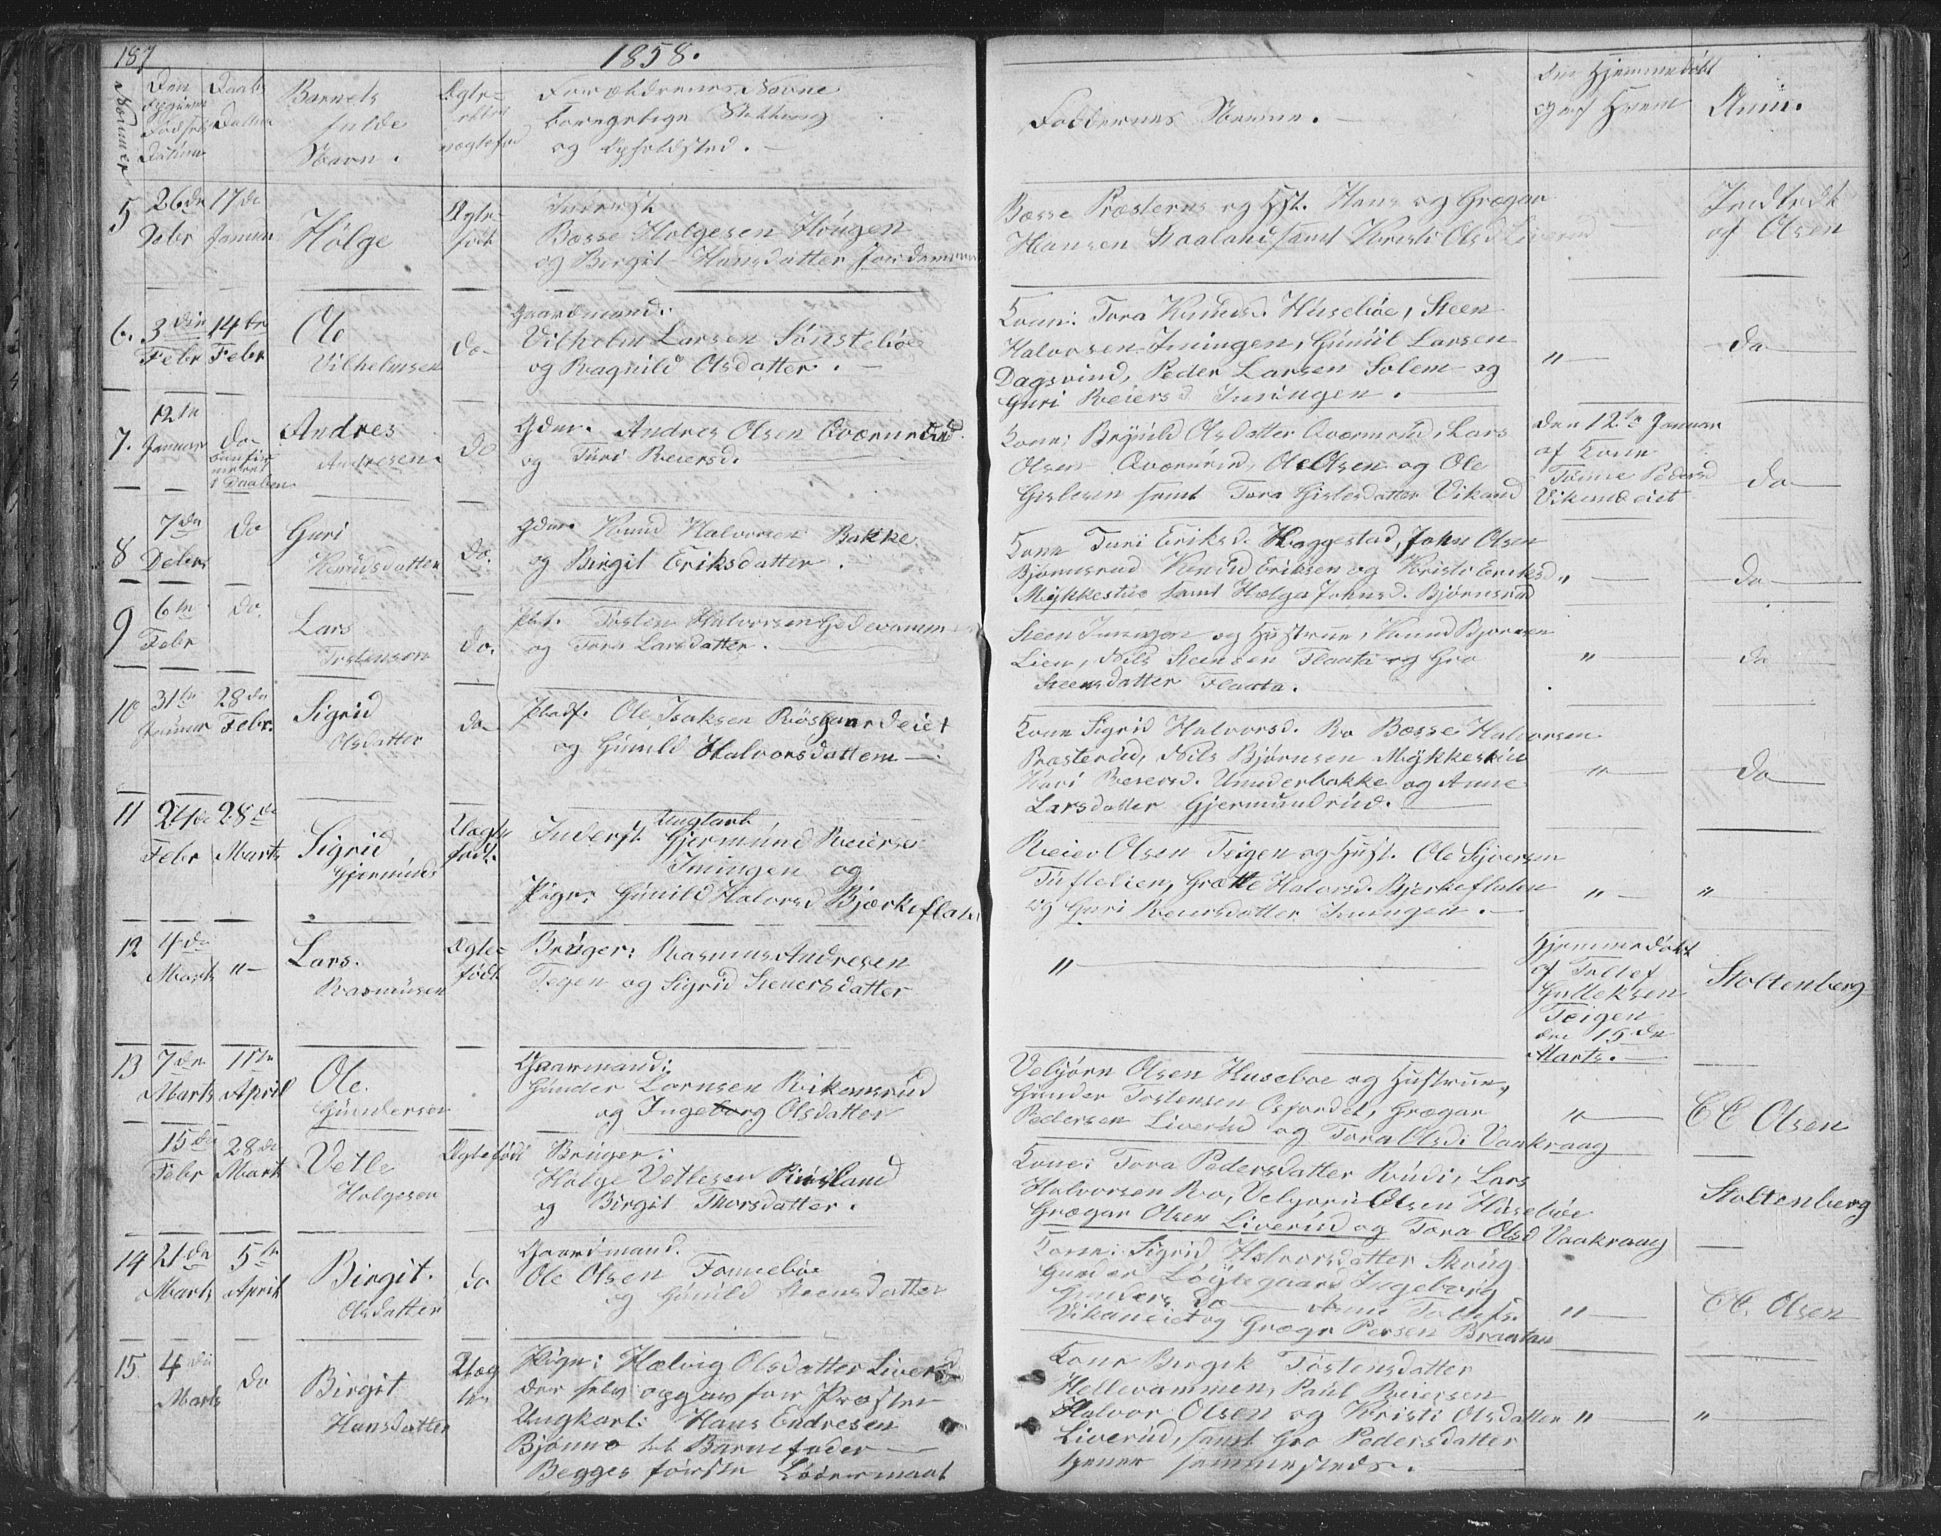 187
1858.
Nummer
Den
Fødsels
Datum
Daabs
Datum
Barnets
fulde
Navn.
Ægte-
Forældrenes Navne
Borgelige Stilling
og Opholdsted.
Faddernes Navne.
Om Hjemmedøbt
og af Hvem
Anm.
5
26de
17de
Januar
Hølge
Ægte-
født
Inderst
Bosse Holgesen Høugen
og Birgit Hansdatter
Bosse Præsterus og Hst. Hans og Grægar
Hansen Raaland samt Kristi Olsd Liverud
Indledt
af Olsen
6.
3die
Febr
14de
Febr
Ole
Vilhelmsen
do
Gaardmand:
Vilhelm Larsen Sønstebøe
og Ragnild Olsdatter.
Kone: Tora Knuds. Husebøe, Steen
Halvorsen Juningen, Guniil Larsen
Dagsvind, Peder Larsen Solem og
Guri Reiersd Juningen.
"
do
7.
12te
Januar
do
confir
meret
i Daaben
Andres
Andresen
do
Gdm. Andres Olsen Qværnrud
og Turi Reiersd.
Kone: Brynild Olsdatter Qværnrud, Lars
Olsen Qværnrud, Ole Olsen og Ole
Gislesen samt Tora Gislesdatter Vikand
den 12te Januar
af Kone
Tonne Pedersd
Vikandeiet
do
8
7de
Debrs
do
Guri
Knudsdatter
do.
Gdm. Knud Halvorsen Bakke
og Birgit Eriksdatter.
Kone Turi Eriksd. Haggestad, John Olsen
Bjørnsrud Knud Eriksen og Kristi Eriksd
Mykkestue samt Helge Johnsd. Bjørnsrud
"
do
9
6te
Febr
do.
Lars
Tostensen
do.
Plst. Tosten Halvorsen
og Tora Larsdatter.
Steen Juningen og Hustrue, Knud Bjørnsen
Lien, Nils Steensen Flaata og Gro
Steensdatter Flaata.
"
do
10
31te
Januar
28de
Febr.
Sigrid
Olsdatter
do
Pladsf. Ole Isaksen Røsgaardeiet
og Gunild Halvorsdattem
Kone Sigrid Halvorsd. Ro Bosse Halvorsen
Præsterud, Nils Bjørnsen Mykkestue
Kari Reiersd. Unnderbakke og Anne
Larsdatter Gjermundrud.
"
do
11
24de
Febr
28de
Marts
Sigrid
Gjermunds
Uægte
født.
Inderst Ungkarl Gjermund Reiersen
Juningen og
Pige; Gunild Halvorsd Bjærkeflaten
Reier Olsen Teigen og Hust. Ole Syversen
Tuftelien, Grætte Halvorsd. Bjerkeflaten
og Guri Reiersdatter Juningen.
"
"
12
4de
Marts
"
Lars.
Rasmusen
Ægte-
født
Bruger: Rasmus Andresen
Tegen og Sigrid Stenersdatter
"
Hjemmedøbt
af Tollef
Gulleksen
Teigen
den 15de
Marts.
Stoltenberg
13
7de
Marts
11te
April
Ole.
Gundersen
Gaarmand:
Gunder Larnsen Rikansrud
og Ingeborg Olsdatter
Velsjørn Olsen Husebøe og Hustrue,
Gunder Tostensen Osfordel, Grægar
Pedersen Liverud og Tora Olsd: Vaakraag
"
CC Olsen
15de
Febr
28de
Marts
Vetle
Holgesen
Ægtefødt
Bruger:
Holge Vetlesen Rusland
og Birgit Thorsdatter.
Kone: Tora Pedersdatter Rudi, Lars
Halvorsen Ro, Velgorn Olsen Husebøe
Grægar Olsen Liverud og Tora Olsd Vaakraag
Stoltenberg
14
21de
Marts
5te
April
Birgit.
Olsdatter
do
Gaardmand.
Ole Olsen Fonnebøe
og Gunild Steensdatter
Kone: Sigrid Halvorsdatter Skrug
Gunder Løytegaard Ingeborg
Gunders do Anne Tollefs.
Vikaneiet og Grægr Persen Braatan
"
CC Olsen
15.
4de
Marts
do
Birgit
Hansdatter
Uæg
te
Pige: Hælvig Olsdatter Liverud
der selv opgav for Præsten
Ungkarl: Hans Endresen
Bjønno til Barnefader
Begges første Leiermaal
Kone Birgit Tostensdatter
Hellevammen, Paul Reiersen
Halvor Olsen og Kristi Olsdatter
Liverud, samt Gro Pedersdatter
sammesteds.
"
"